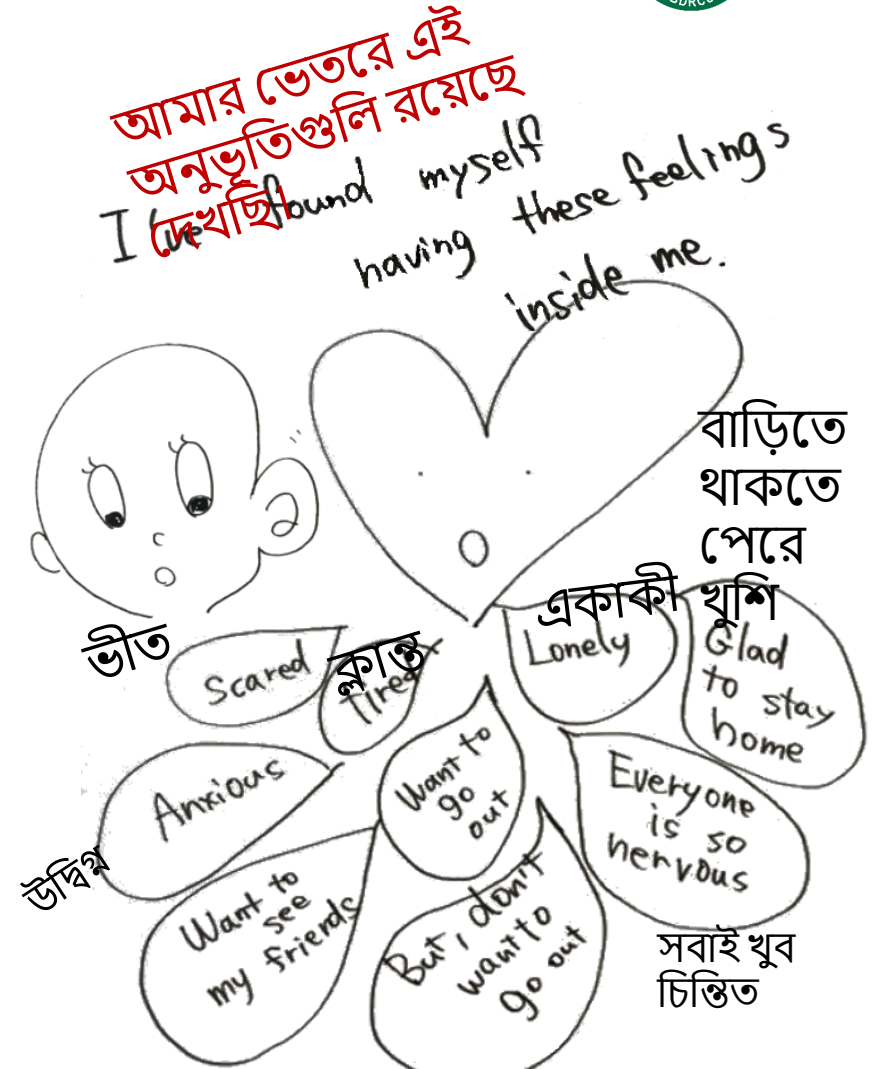 আমার ভেতরে এই
অনুভূতিগুলি রয়েছে
দেখছি।
I've found myself
having these feelings
inside me.
বাড়িতে
থাকতে
পেরে
খুশি
একাকী
ভীত
ক্লান্ত
Scared
Tired
Lonely
Glad
to stay
home
Anxious
Want to
go
out
Everyone
is so
nervous
উদ্বিগ্ন
Want to
see
my friends
But, I don't
want to
go out
সবাই খুব
চিন্তিত